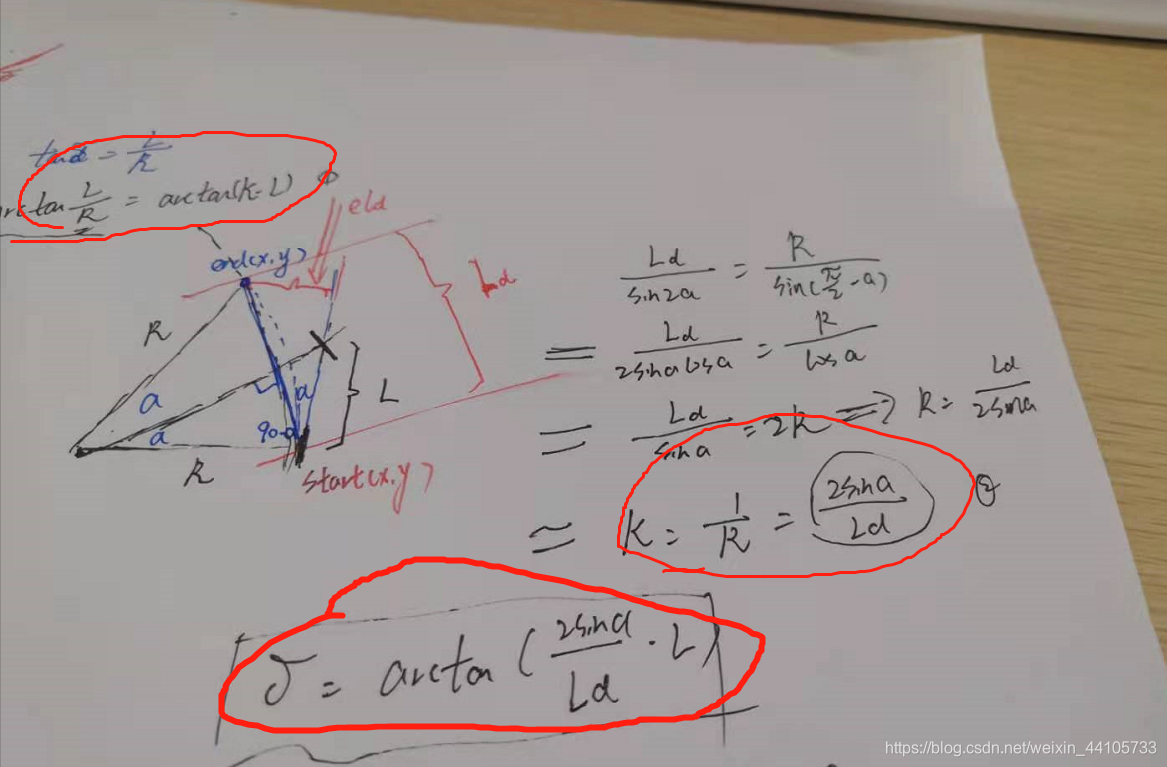 tanα = L/R
arctan L/R = arctan(K·L) ①
eld
end(x,y)
Ld
R
a
a
a
L
90-a
R
start(x,y)
Ld/sin2a = R/sin(π/2 - a)
= Ld/2sina cosa = R/cos a
= Ld/sin a = 2R => R = Ld/2sina
≈ K = 1/R = 2sina/Ld ②
δ = arctan(2sina/Ld · L)
https://blog.csdn.net/weixin_44105733